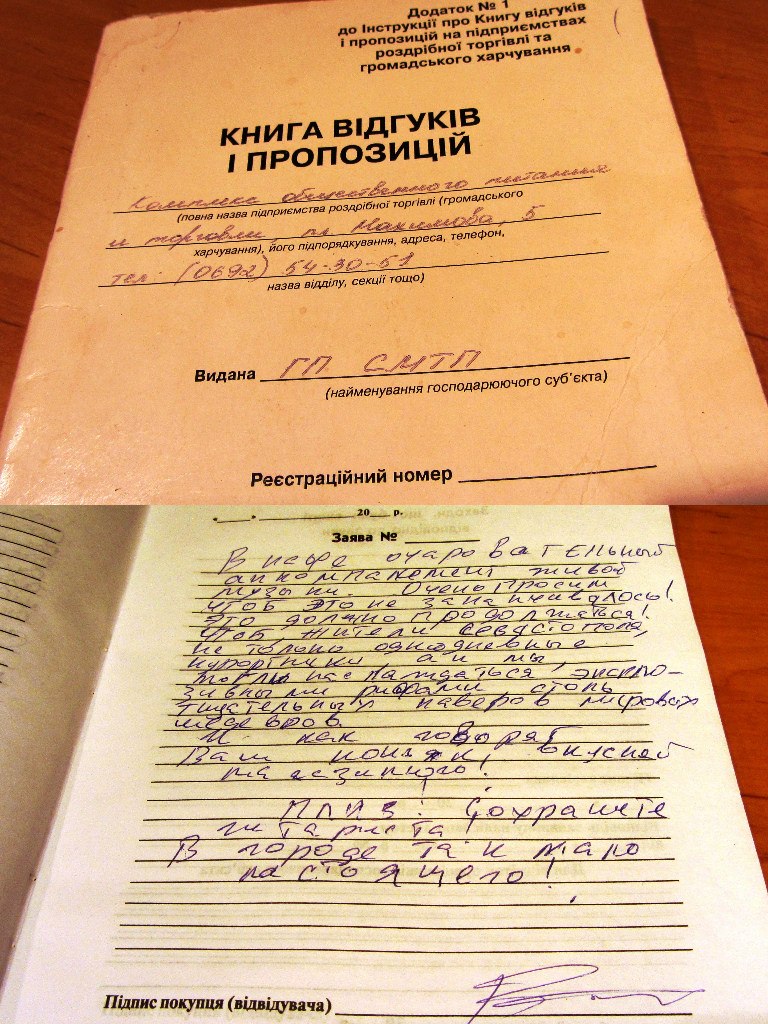 Додаток № 1
до Інструкції про Книгу відгуків
і пропозицій на підприємствах
роздрібної торгівлі та
громадського харчування
КНИГА ВІДГУКІВ
І ПРОПОЗИЦІЙ
Комплекс общественного питания
(повна назва підприємства роздрібної торгівлі (громадського
и торговли пл. Нахимова, 5
харчування), його підпорядкування, адреса, телефон,
тел: (0692) 54-30-51
назва відділу, секції тощо)
Видана ГП СМТП
(найменування господарюючого суб'єкта)
Реєстраційний номер
"___" 20__ р.
Заява №
В кафе очаровательный
аккомпанемент живой
музыки. Очень просим
чтоб это не заканчивалось!
Это должно продолжаться!
Чтоб жители Севастополя,
не только однодневные
курортники а и мы,
могли наслаждаться, экскл-
зивными рифами столь
тщательных каверов мировых
шедевров.
И как говорят
Ваш коньяк, вкусней
магазинного!
ПЛИЗ! Сохраните
гитариста!
В городе так мало
настоящего!
Підпис покупця (відвідувача)